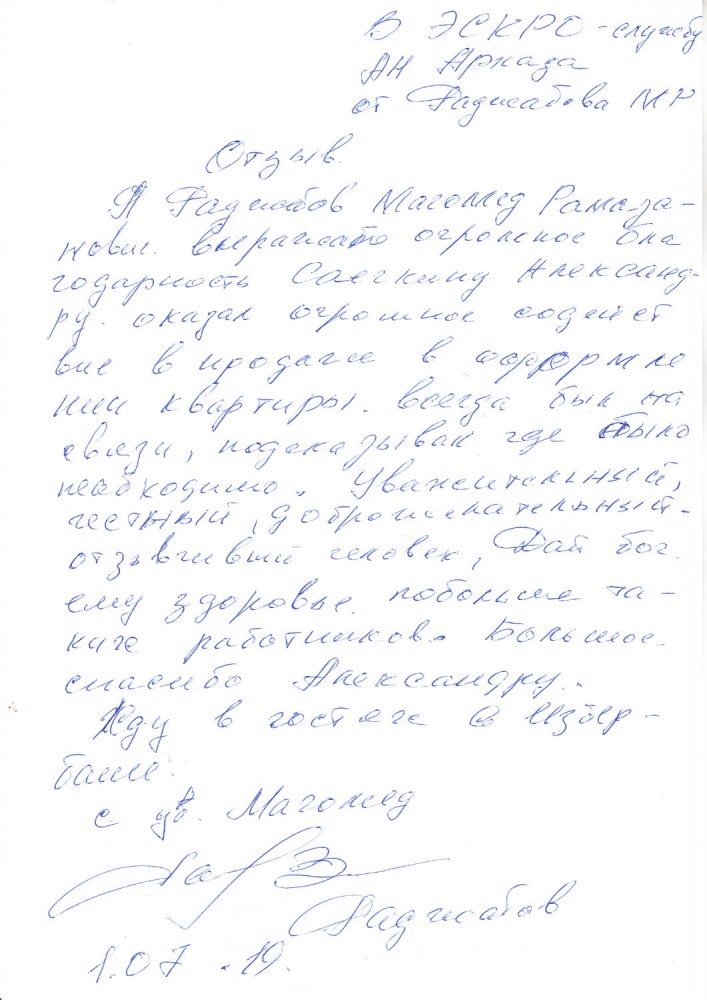 В ЭСКРО-службу
АН Аркада
от Раджабова МР
Отзыв.
Я Раджабов Магомед Рамаза-
нович. выражаю огромное бла
годарность Александ-
ру. оказал огромное содейст
вие в продаже в оформле
нии квартиры. всегда был на
связи, подсказывал где было
необходимо. Уважительный,
честный, доброжелательный-
отзывчивый человек, Дай бог.
ему здоровье. побольше та-
ких работников. Большое.
спасибо Александру.
Жду в гостях в Избер-
баше.
с ув. Магомед
Раджабов
1.07.19.